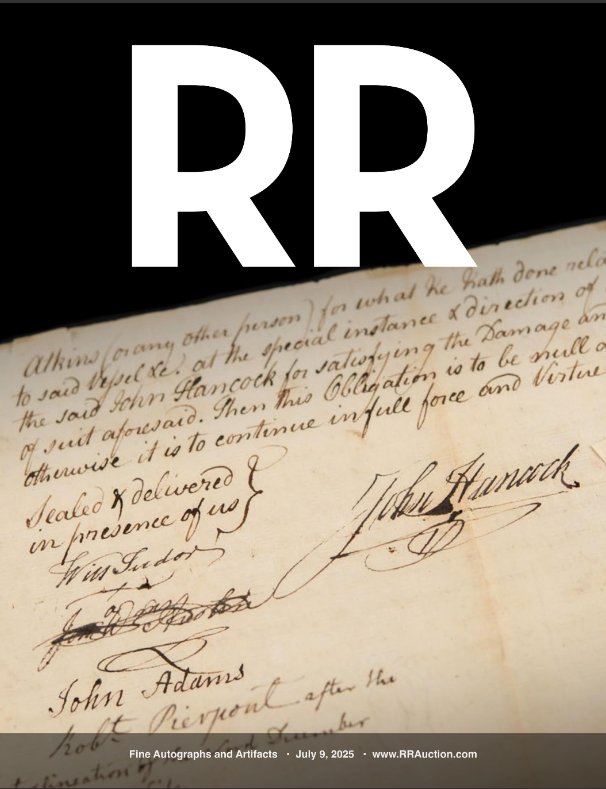 RR
Atkins (or any other person) for what he hath done rela
to said Vessel &c. at the special instance & direction of
the said John Hancock for satisfying the Damage an
of suit aforesaid. Then this Obligation is to be null a
otherwise it is to continue in full force and Virtue
Sealed & delivered
in presence of us
John Hancock
Will Tudor
John Adams
Robt Pierpont after the
December
Fine Autographs and Artifacts • July 9, 2025 • www.RRAuction.com